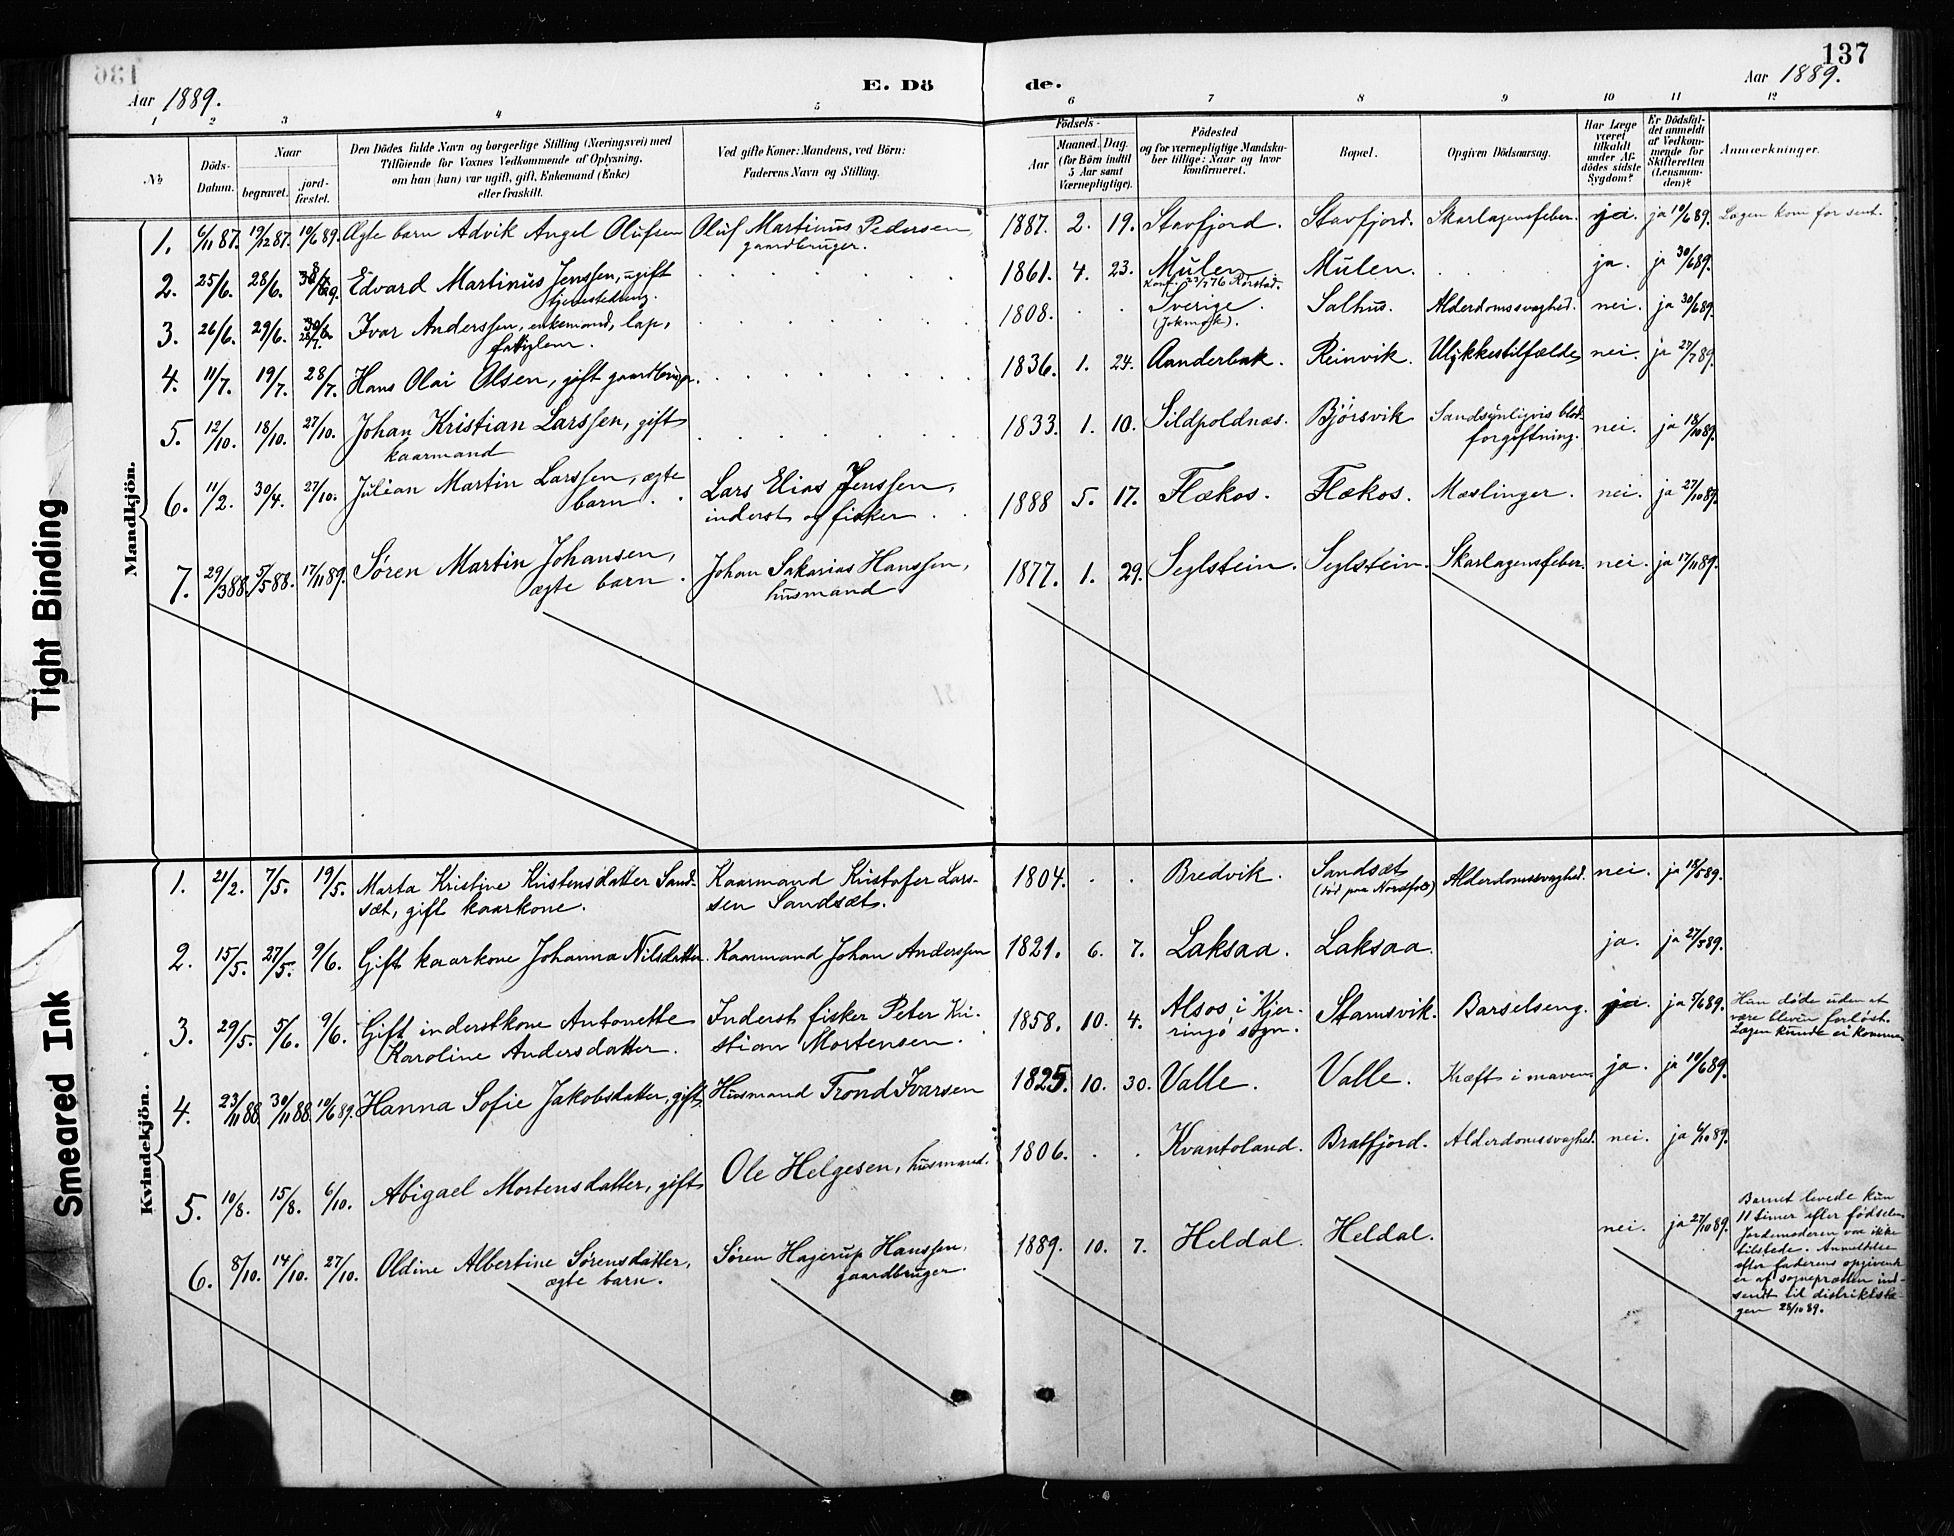 137
Aar 1889.
E. Dö
de.
Aar 1889.
1 2 3 4 5 6 7 8 9 10 11 12
No
Döds-
Datum.
Naar
begravet.
jord-
fæstet.
Den Dödes fulde Navn og borgerlige Stilling (Næringsvei) med
Tilföiende for Voxnes Vedkommende af Oplysning,
om han (hun) var ugift, gift, Enkemand (Enke)
eller fraskilt.
Ved gifte Koner: Mandens, ved Börn:
Faderens Navn og Stilling.
Födsels-
Aar
Maaned. Dag.
(for Börn indtil
5 Aar samt
Værnepligtige).
Födested
og for værnepligtige Mandska-
ber tillige: Naar og hvor
konfirmeret.
Bopæl.
Opgiven Dödsaarsag.
Har Læge
været
tilkaldt
under Af-
dödes sidste
Sygdom?
Er Dödsfal-
det anmeldt
af Vedkom-
mende for
Skifteretten
(Lensman-
den)?
Anmærkninger.
Mandkjön.
1. 6/11 87. 19/12 87. 10/6 89. Ægte barn Advik Angel Olufsen Oluf Martinus Pedersen, 1887. 2. 19. Stavfjord. Stavfjord. Skarlagensfeber. ja. ja 10/6 89. Lægen kom for sent.
gaardbruger.
2. 25/6. 28/6. Edvard Martinus Jenssen, ugift 1861. 4. 23. Mulen Mulen. ja. ja 30/6 89.
tjenestedreng. Konf. Rörstad.
3. 26/6. 29/6. Ivar Anderssen, enkemand, lap, 1808. Sverige. Salhus. Alderdomssvaghed. nei. ja 30/6 89.
fattiglem. (Jokmok).
4. 11/7. 19/7. 28/7. Hans Olai Olsen, gift gaardbruger. 1836. 1. 24. Aanderbak. Reinvik. Ulykkestilfælde nei. ja 27/7 89.
5. 12/10. 18/10. 27/10. Johan Kristian Larssen, gift 1833. 1. 10. Sildpoldnæs. Bjørsvik Sandsynligvis blod- nei. ja 18/10 89.
kaarmand forgiftning.
6. 11/2. 30/4. 27/10. Julian Martin Larssen, ægte Lars Elias Jenssen, 1888 5. 17. Flækos. Flækos. Mæslinger. nei. ja 27/10 89.
barn. inderst og fisker.
7. 29/3 88. 5/5 88. 17/11 89. Søren Martin Johansen, Johan Sakarias Hanssen, 1877. 1. 29. Seglstein. Seglstein. Skarlagensfeber. nei. ja 17/11 89.
ægte barn. husmand
Kvindekjön.
1. 21/2. 7/5. 19/5. Marta Kristine Kristensdatter Sand- Kaarmand Kristofer Lars- 1804. Bredvik. Sandsæt Alderdomssvaghed. nei. ja 18/5 89.
sæt, gift kaarkone. sen Sandsæt. (død paa Nordfold)
2. 15/5. 27/5. 9/6. Gift kaarkone Johanna Nilsdatter. Kaarmand Johan Anderssen 1821. 6. 7. Laksaa. Laksaa. ja. ja 27/5 89.
3. 29/5. 5/6. 9/6. Gift inderstkone Antonette Inderst fisker Peter Kri- 1858. 10. 4. Alsos i Kjer- Stamsvik. Barselseng. ja. ja 5/6 89. Hun døde uden at
Karoline Andersdatter. stian Mortensen. ringø sogn. være bleven forløst.
Lægen kunde ei komme.
4. 23/11 88. 30/11 88. 10/6 89. Hanna Sofie Jakobsdatter, gift. Husmand Trond Ivarsen 1825. 10. 30. Valle. Valle. Kræft i maven. ja. ja 10/6 89.
5. 10/8. 15/8. 6/10. Abigael Mortensdatter, gift Ole Helgesen, husmand. 1806. Kvantoland. Bratfjord. Alderdomssvaghed. nei. ja 6/10 89.
6. 8/10. 14/10. 27/10. Oldine Albertine Sørensdatter, Søren Hagerup Hanssen, 1889. 10. 7. Heldal. Heldal. nei. ja 27/10 89.
ægte barn. gaardbruger.
Barnet levede kun
11 timer efter fødselen
Jordemoderen var ikke
tilstede. Anmeldelse
efter faderens opgivende
er af sognepresten ind-
sendt til distriktslæ-
gen 28/10 89.
Tight Binding
Smeared Ink